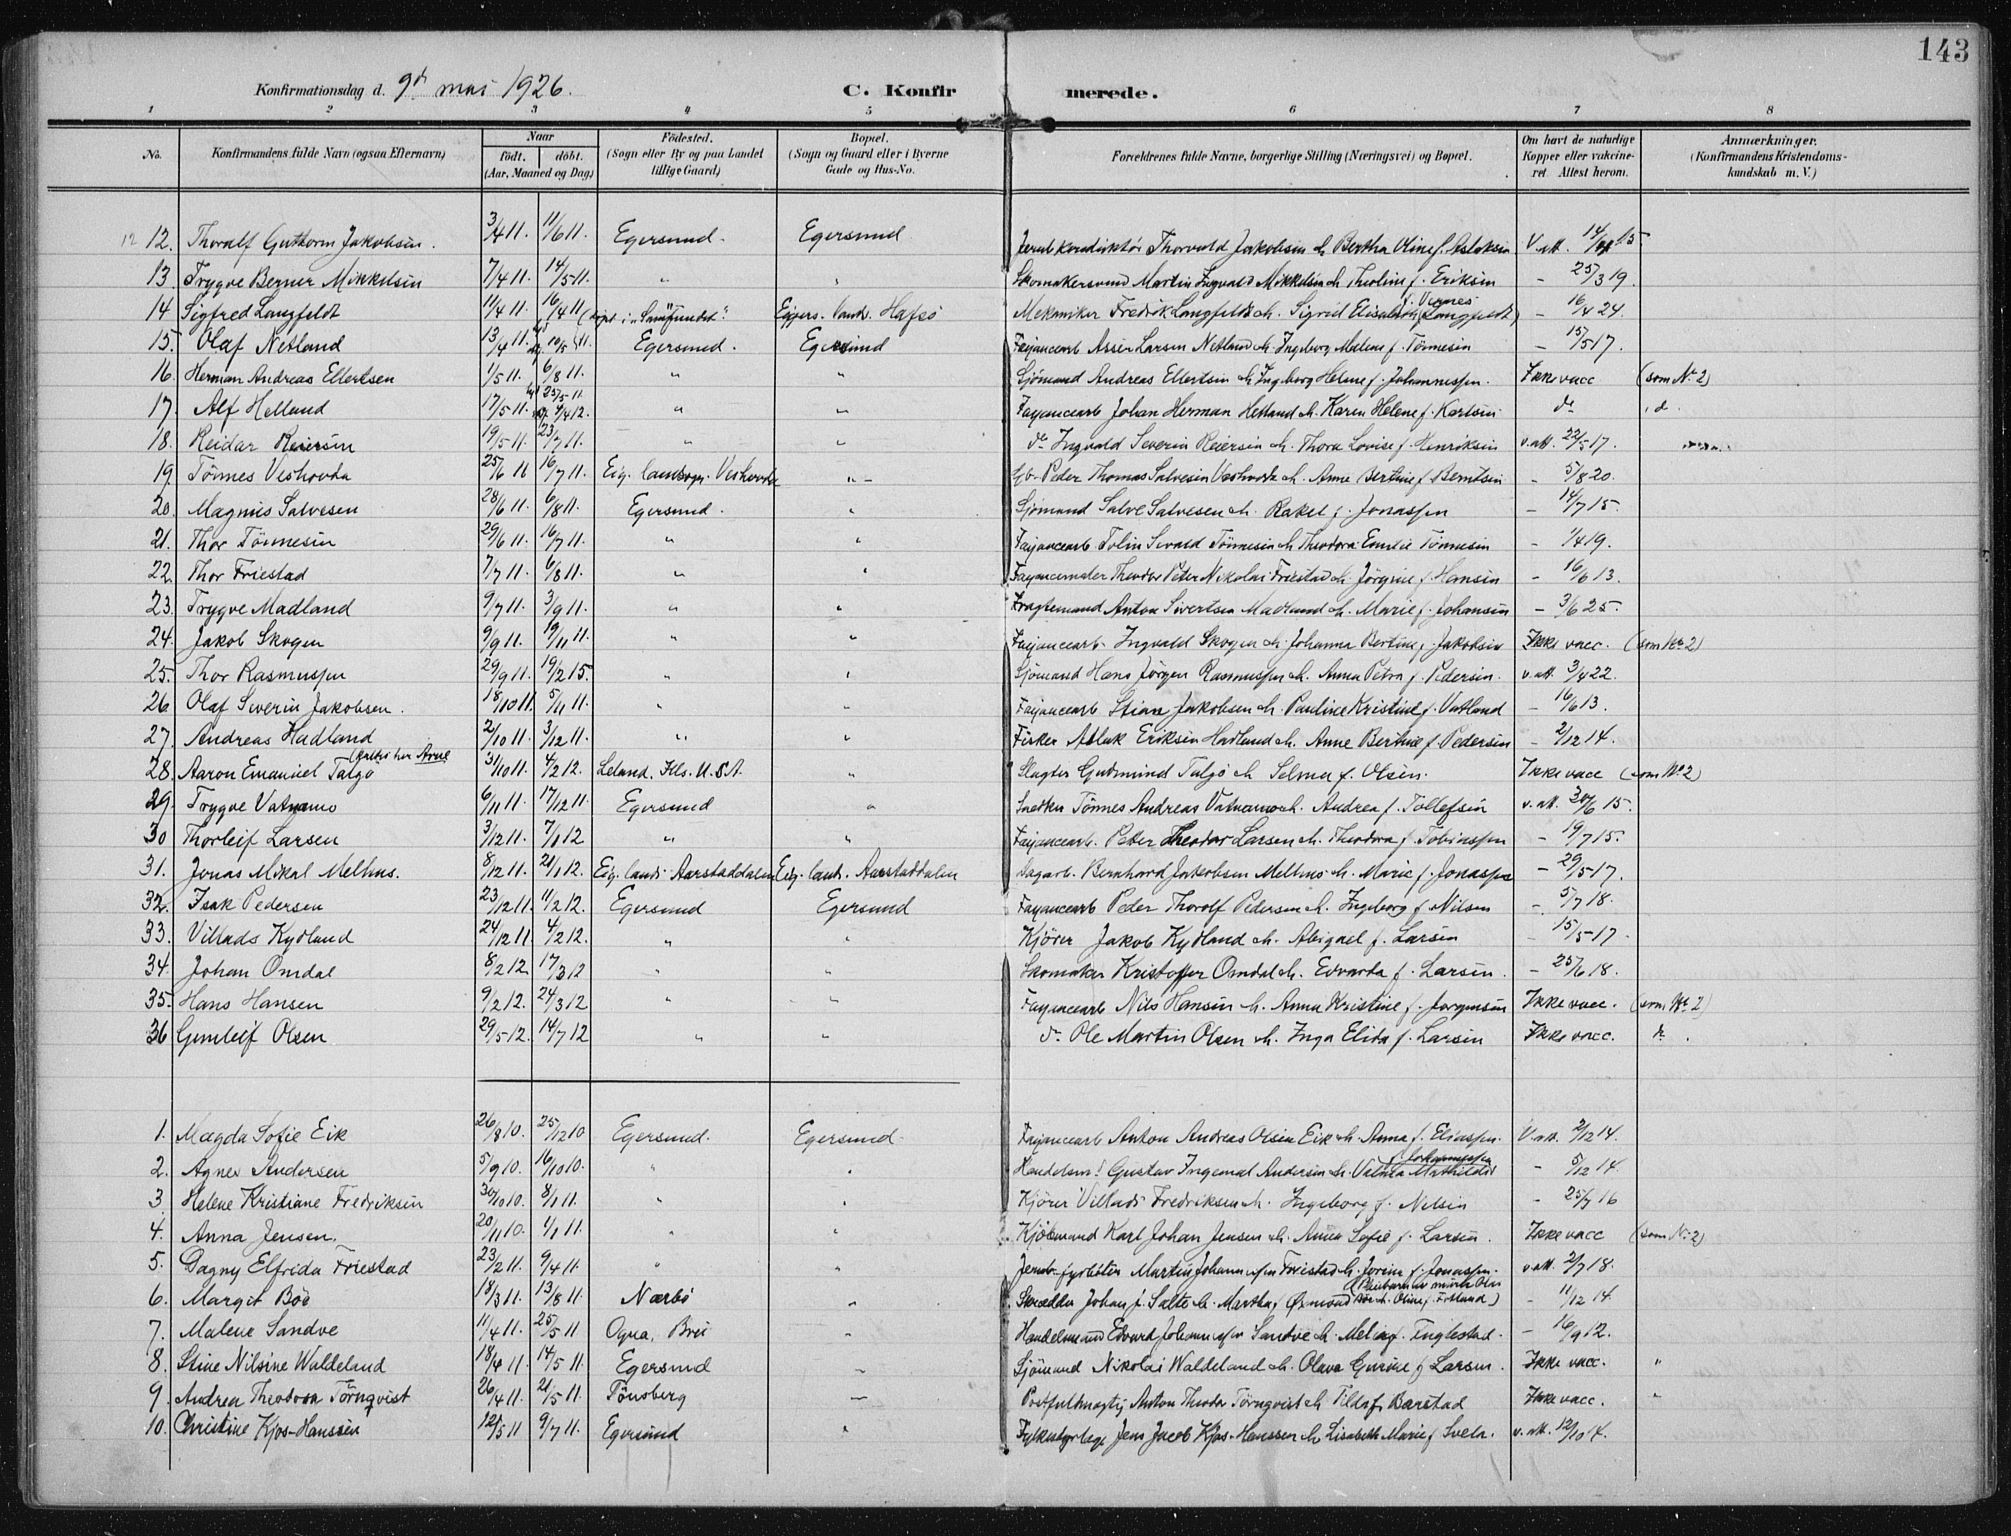 143
Konfirmationsdag d. 9d mai 1926. C. Konfirmerede.
1 2 3 4 5 6 7 8
No. Konfirmandens fulde Navn (ogsaa Efternavn) Naar født. døbt. (Aar, Maaned og Dag) Fødested. (Sogn eller By og paa Landet tillige Gaard) Bopæl. (Sogn og Gaard eller i Byerne Gade og Hus-No. Forældrenes fulde Navne, borgerlige Stilling (Næringsvei) og Bopæl. Om havt de naturlige Kopper eller vakcineret. Attest herom. Anmærkninger. (Konfirmandens Kristendomskundskab m. V.)
12 12. Thoralf Guthorm Jakobsen. 3/4 11. 11/6 11. Egersund. Egersund Jernb.konduktör Thorvald Jakobsen & Bertha Oline f. Aslaksen V. att. 15
13. Trygve Berner Mikkelsen 7/4 11. 14/5 11. " " Skomakersvend Martin Ingvald Mikkelsen & Theoline f. Eriksen - 25/3 19.
14 Sigfred Langfeldt 11/4 11. 16/4 11 (döpt i "Samfundet". Eggers. lands. Hafsö Mekaniker Fredrik Langfeldt & Sigrid Elisabeth (Langfeldt) - 16/4 24.
15. Olaf Netland 13/4 11. 10/5 11. Egersund. Egersund Fajancearb Asser Larsen Netland & Ingeborg Malene f. Tönnesen - 15/5 17.
16. Herman Andreas Ellertsen 1/5 11. 6/8 11. " " Sjömand Andreas Ellertsen & Ingeborg Helene f. Johannessen. Ikke vacc (som No 2)
17. Alf Helland 17/5 11. 25/5 11 4/4 12. " " Fayancearb Johan Herman Helland & Karen Helene f. Karlsen do d.
18. Reidar Reiersen 19/5 11. 23/7 11. " " do Ingvald Severin Reiersen & Thora Lovise f. Henriksen v. att. 22/5 17.
19. Tönnes Veshovda 25/6 11 16/7 11. Eig. landsogn. Veshovda " - Gb. Peder Thomas Salvesen Veshovda & Anne Bertine f. Berntsen - 5/8 20.
20. Magnus Salvesen 28/6 11. 6/8 11. Egersund. " Sjömand Salve Salvesen & Rakel f. Jonassen - 14/7 15.
21. Thor Tönnesen 29/6 11. 16/7 11. " " Fajancearb Tolin Sivald Tönnesen & Theodora Emilie Tönnesen - 1/4 19.
22. Thor Friestad 7/7 11. 6/8 11. " " Fayancemaler Theodor Peter Nikolai Friestad & Jörgine f. Hansen - 16/6 13.
23. Trygve Madland 9/7 11. 3/9 11. " " Fragtemand Anton Sivertsen Madland & Marie f. Johansen - 3/6 25.
24. Jakob Skogen 9/9 11. 19/11 11. " " Fajancearb. Ingvald Skogen & Johanna Bertine f. Jakobsen Ikke vacc. (som No 2)
25. Thor Rasmussen 29/9 11. 19/2 15. " " Sjömand Hans Jörgen Rasmussen & Anna Petra f. Pedersen. v. att. 3/4 22.
26 Olaf Severin Jakobsen. 18/10 11. 5/11 11. " " Fajancearb Stian Jakobsen & Pauline Kristine f. Vatland - 16/6 13.
27. Andreas Hadland 2/10 11. 3/12 11. " " Fisker Aslak Eriksen Hadland & Anne Bertine f. Pedersen - 2/12 14.
28. Aaron Emanuel Talgö (kaldes her Arne 31/10 11. 4/2 12. Leland. Ills. U.S.A. " Slagter Gudmund Talgö & Selma f. Olsen. Ikke vacc (som No 2)
29. Trygve Vatnamo 6/11 11. 17/12 11. Egersund " Snedker Tönnes Andreas Vatnamo & Andrea f. Tollefsen v. att. 30/6 15.
30 Thorleif Larsen 3/12 11. 7/1 12 " " Fajancearb. Peter Theodor Larsen & Theodora f. Tobiassen - 19/7 15.
31. Jonas Mikal Melhus. 8/12 11. 21/1 12. Eig. lands. Aarstaddalen Eig. lands. Aarstaddalen Dagarb. Bernhard Jakobsen Melhus & Marie f. Jonassen - 29/5 17.
32. Isak Pedersen 23/12 11. 11/2 12. Egersund Egersund Fayancearb Peder Thorolf Pedersen & Ingeborg f. Nilsen - 5/7 18.
33. Villads Kydland 24/12 11. 4/2 12. " " Kjörer Jakob Kydland & Abigael f. Larsen - 15/5 17.
34. Johan Omdal 8/2 12. 17/3 12 " " Skomaker Kristoffer Omdal & Edvarda f. Larsen. - 25/6 18.
35. Hans Hansen 9/2 12. 24/3 12 " " Fayancearb Nils Hansen & Anna Kristine f. Jörgensen Ikke vacc. (som No 2)
36 Gunleif Olsen 29/5 12. 14/7 12 " " do Ole Martin Olsen & Inga Elida f. Larsen Ikke vacc. do.
1. Magda Sofie Eik 26/8 10. 25/12 10 Egersund. Egersund. Fajancearb Anton Andreas Olsen Eik & Anna f. Eliassen. V. att. 2/12 14.
2. Agnes Andersen 5/9 10. 16/10 10. " " Handelsm. Gustav Ingemal Andersen & Valida Mathilde f. Johannessen - 5/12 14.
3 Helene Kristiane Fredriksen 30/10 10. 8/1 11. " " Kjörer Villads Fredriksen & Ingeborg f. Nilsen - 25/7 16
4. Anna Jensen. 20/11 10. 1/1 11. " " Kjöbmand Karl Johan Jensen & Anna Sofie f. Larsen. Ikke vacc (som No 2)
5. Dagny Elfrida Friestad 23/2 11. 9/4 11. " " Jernb. fyrböter Martin Johannessen Friestad & Jorine f. Jonassen. v. att. 2/7 18.
6. Margit Böe 18/3 11. 13/8 11. Nærbö " Skrædder Johan J. Salte & Martha f. Osmundsen (Pleiebarn av murer Olai Böe & Oline f. Fotland) - 11/12 14.
7. Malene Sandve 11/4 11. 25/5 11 Ogna, Brei " Handelsmand Edvard Johannessen Sandve & Melina f. Fuglestad. - 16/9 12.
8. Stine Nilsine Waldeland 18/4 11. 14/5 11. Egersund " Sjömand Nikolai Waldeland & Olava Gurine f. Larsen. Ikke vacc. "
9. Andrea Theodora Törnqvist 26/4 11. 21/5 11. Tönsberg - Postfuldmægtig Anton Theodor Törnqvist & Tilda f. Barstad Ikke vacc. "
10. Christine Kjos-Hanssen 12/5 11 9/7 11. Egersund " Fylkestyrlæge Jens Jacob Kjos-Hanssen & Lisabeth Marie f. Svela. v. att. 12/10 14.